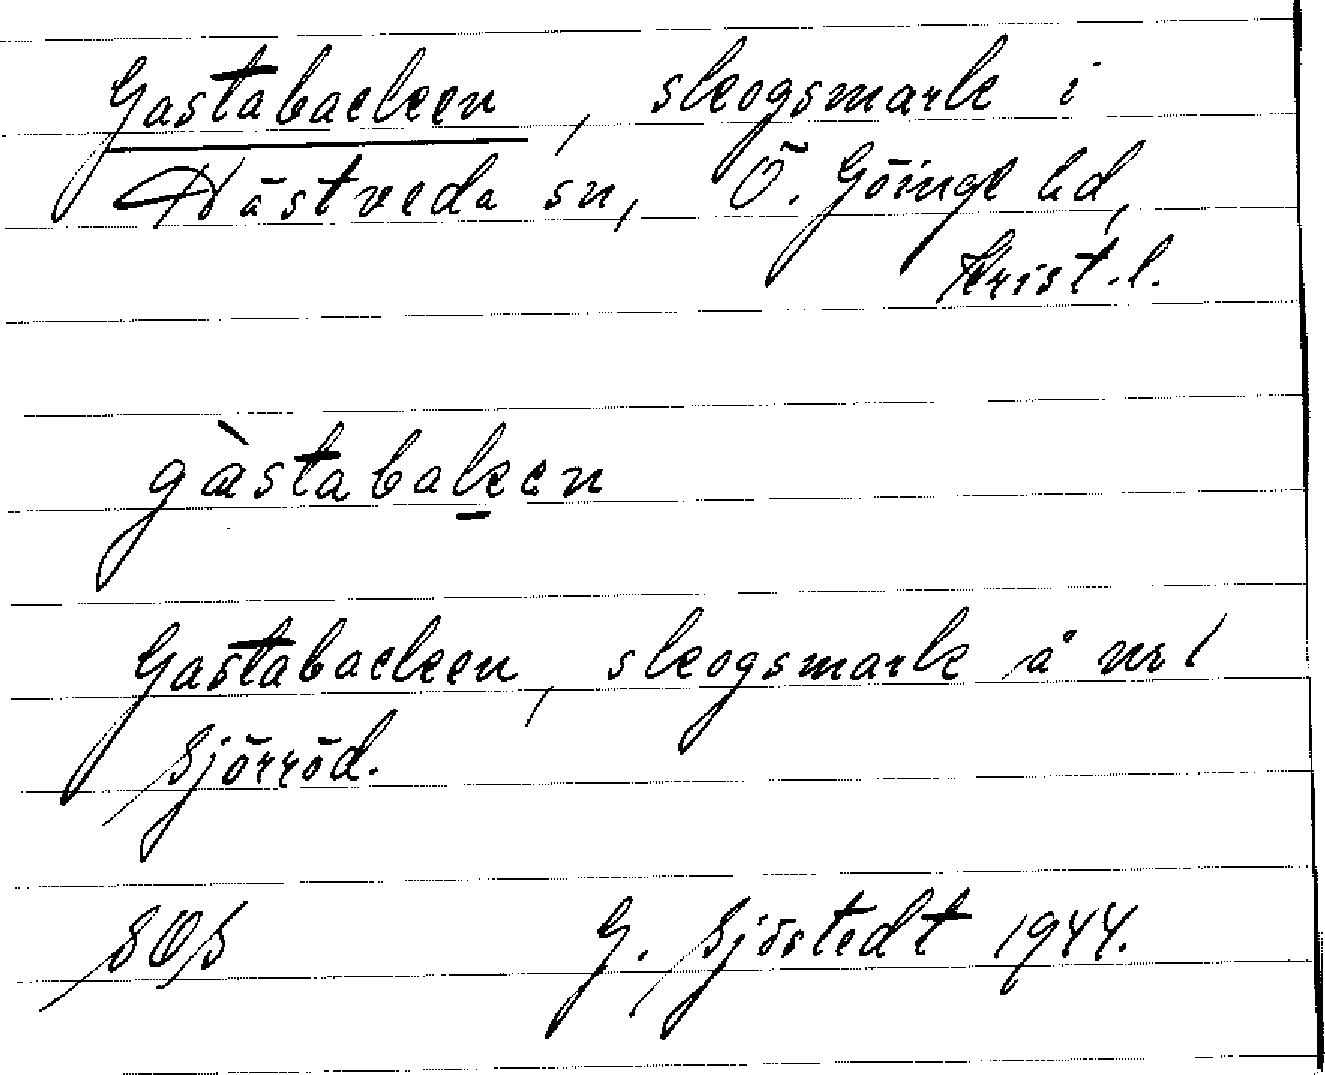 Gastabacken, skogsmark i
Hästveda sn, Ö. Göinge hd,
Krist. l.
gàstabak̲en
Gastabacken, skogsmark å nr 1
Sjörröd.
SOS G. Sjöstedt 1944.